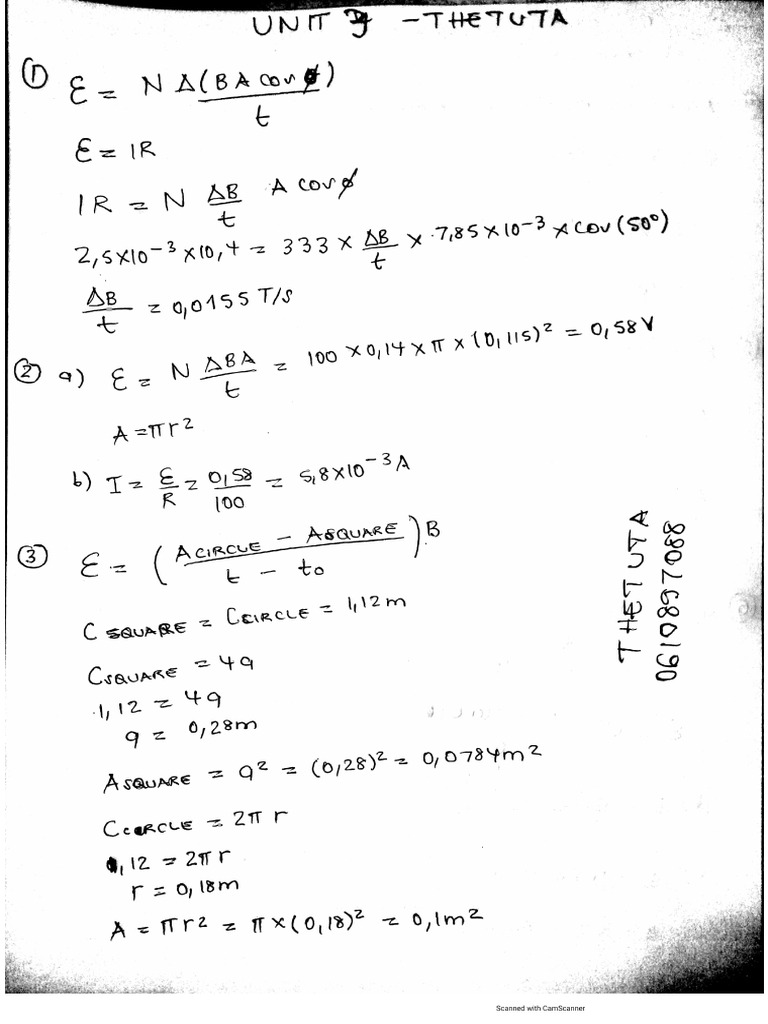 UNIT – THETUTA
① ε = N Δ(BA cos φ) / t
ε = IR
IR = N ΔB/t A cos φ
2,5×10⁻³×10,4 = 333 × ΔB/t × 7,85×10⁻³ × cos (50°)
ΔB/t = 0,0155 T/s
② a) ε = N ΔBA/t = 100 × 0,14 × π × (0,115)² = 0,58V
A = πr²
b) I = ε/R = 0,58/100 = 5,8×10⁻³ A
③ ε = (ACIRCLE – ASQUARE / t – t₀) B
C SQUARE = CCIRCLE = 1,12m
CSQUARE = 4a
1,12 = 4a
a = 0,28m
ASQUARE = a² = (0,28)² = 0,0784m²
CCIRCLE = 2πr
1,12 = 2πr
r = 0,18m
A = πr² = π×(0,18)² = 0,1m²
THETUTA
0610897088
Scanned with CamScanner